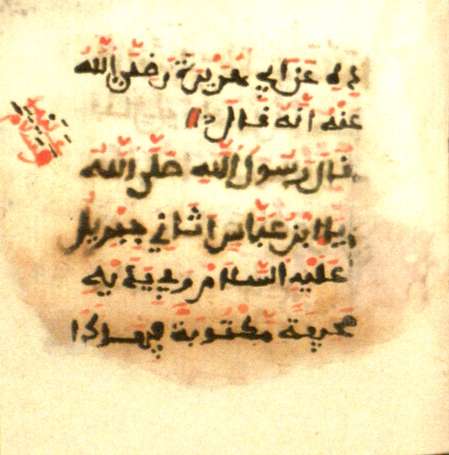 عن ابي هريرة رضي الله
عنه انه قال
قال رسول الله صلى الله
ابن عباس اتاني جبريل
عليه السلام وفي يده
صحيفة مكتوبة